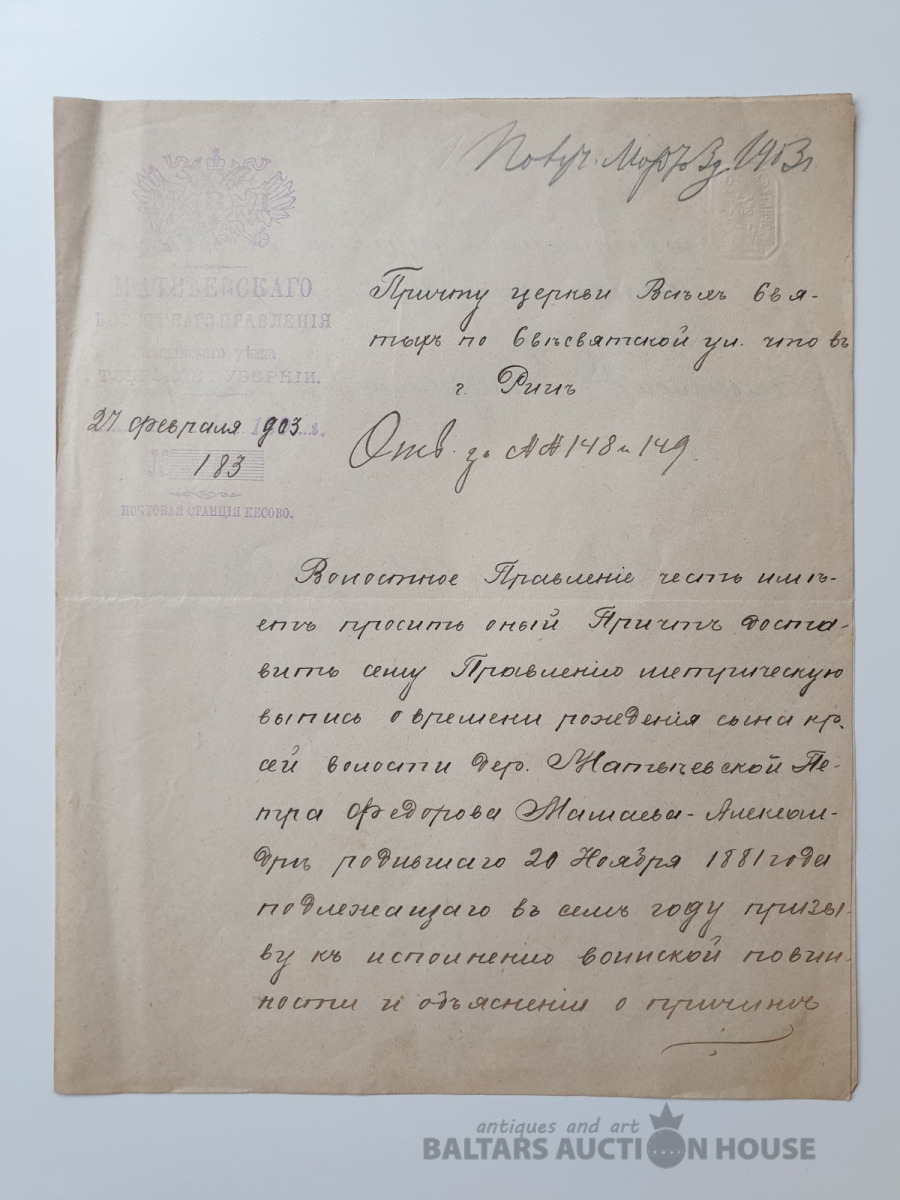 Получ. Мартъ 3 д. 1903 г.
М.В.Д.
МАТВѢЕВСКАГО
ВОЛОСТНАГО ПРАВЛЕНІЯ
Кашинскаго уѣзда
ТВЕРСКОЙ ГУБЕРНІИ.
27 февраля 903 г.
№ 183
ПОЧТОВАЯ СТАНЦІЯ КЕСОВО.
Причту церкви Всѣхъ Свя-
тыхъ по Свѣсвятской ул. что въ
г. Ригѣ
Отв. за №№ 148 и 149.
Волостное Правленіе честь имѣ-
етъ просить оный Причтъ доста-
вить сему Правленію метрическую
выпись о времени рожденія сына кр.
сей волости дер. Матвѣевской Пе-
тра Федорова Мамаева - Алексан-
дрѣ родившаго 20 Ноября 1881 года
подлежащаго въ семъ году призы-
ву къ исполненію воинской повин-
ности и объясненія о причинѣ
antiques and art
BALTARS AUCTION HOUSE